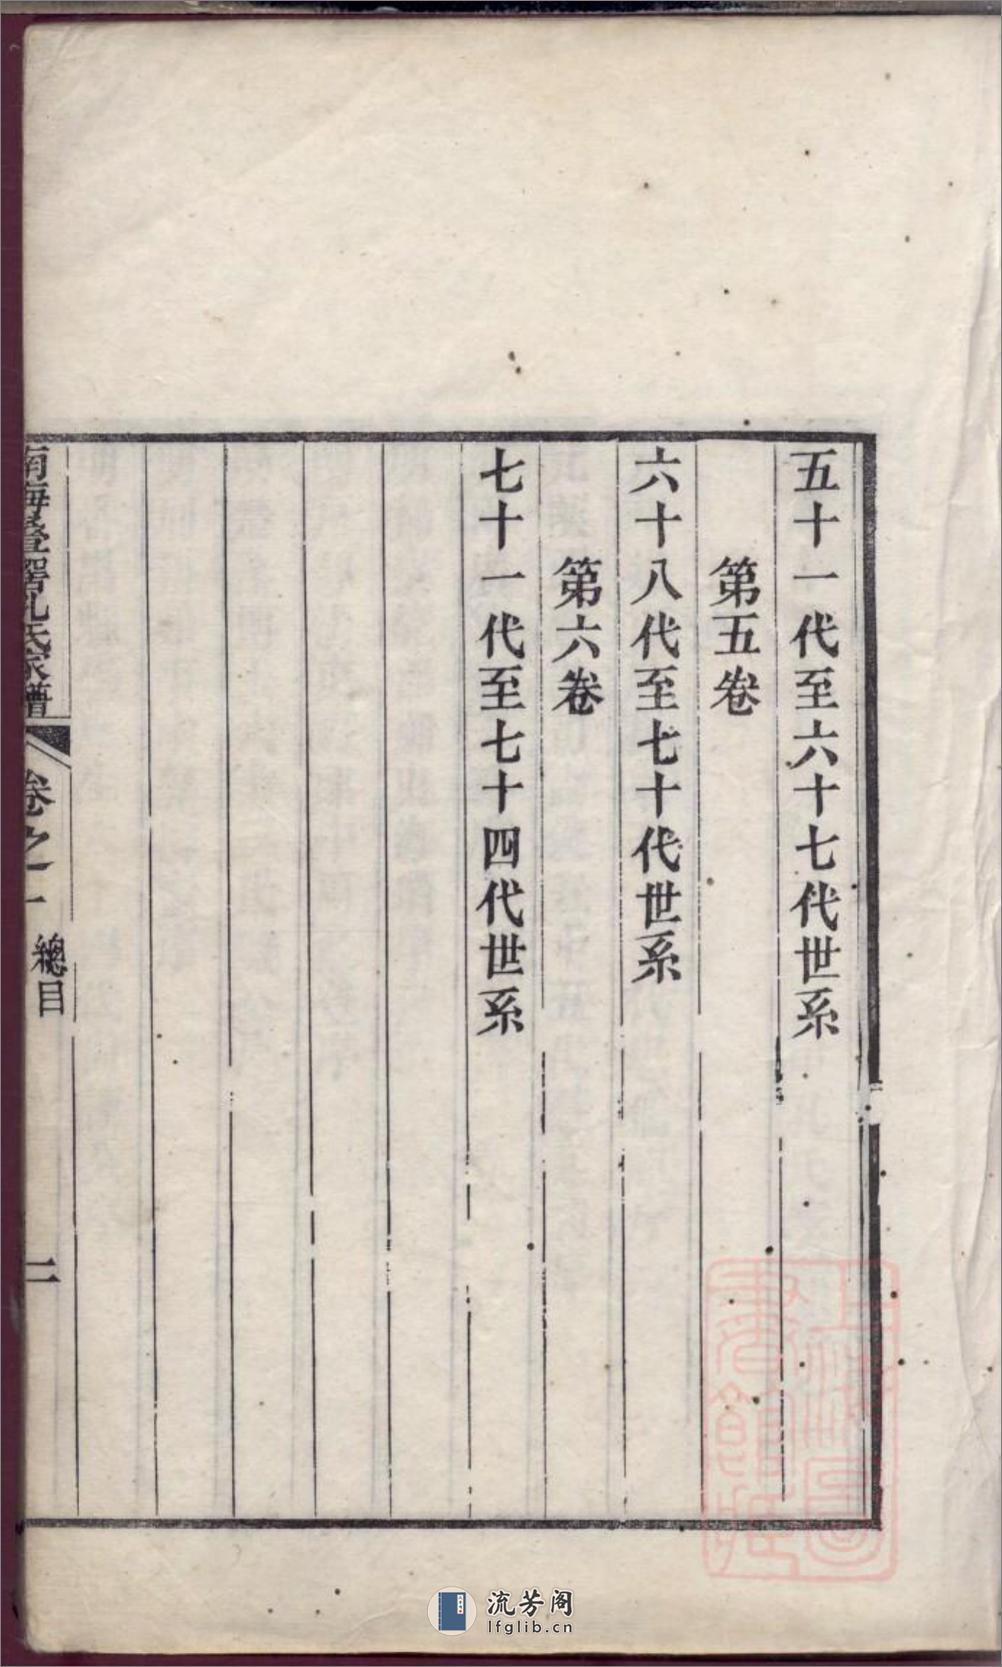 五十一代至六十七代世系
第五卷
六十八代至七十代世系
第六卷
七十一代至七十四代世系
南海疊滘孔氏家譜
卷之一
總目
二
上海圖書館藏
流芳阁
lfglib.cn